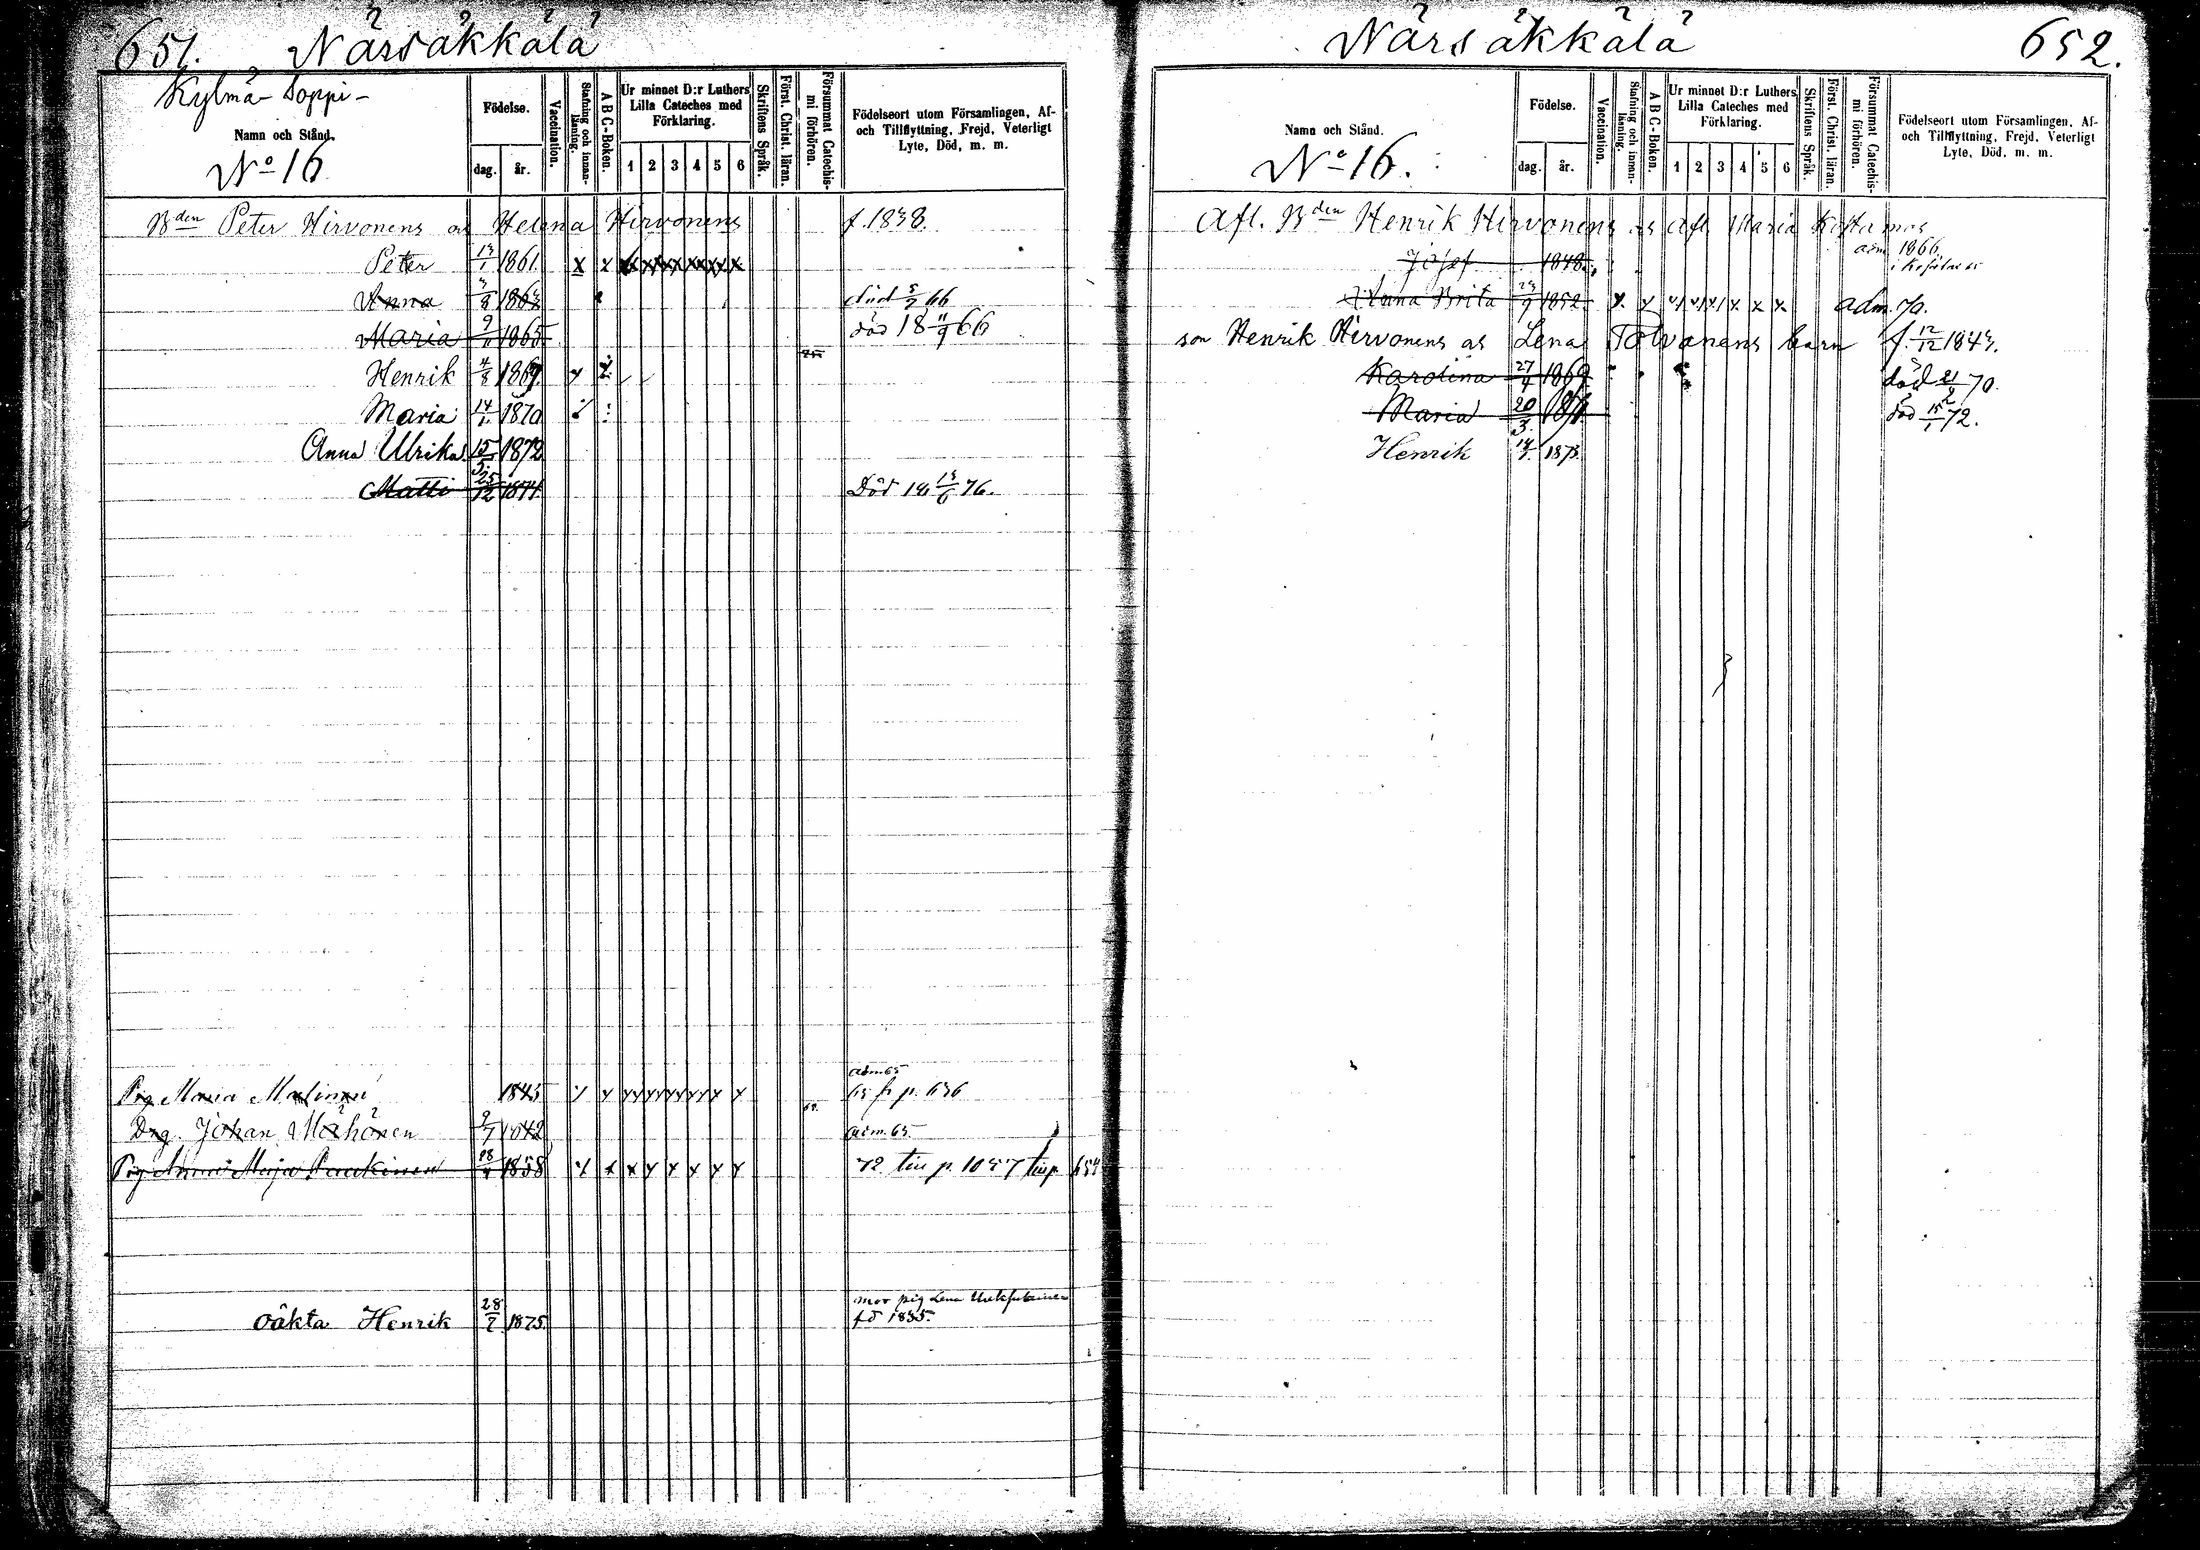 651. Närsäkkälä
Kylmä-Soppi-
Namn och Stånd.
No 16
Födelse.
dag. år.
Vaccination.
Stafning och innan-läsning.
A B C-Boken.
Ur minnet D:r Luthers Lilla Cateches med Förklaring.
1 2 3 4 5 6
Skriftens Språk.
Först. Christ. läran.
Försummat Catechis-mi förhören.
Födelseort utom Församlingen, Af- och Tillflyttning, Frejd, Veterligt Lyte, Död, m. m.
Bden Peter Hirvonens os Helena Hirvonens f. 1838.
Peter 13/1 1861. x x x x x x x x
Anna 3/8 1863 död 5/7 66
Maria 9/11 1865 död 18 11/9 66
Henrik 4/8 1867
Maria 14/1 1870
Anna Ulrika 15/5 1872
Matti 25/12 1874 Död 18 13/6 76.
adm 65
Pig Maria Matinen 1845 65 fr p. 636
Drg. Johan Möhönen 9/7 1842 adm. 65
Pig Anna Maja Paakinen 28/4 1858 x x x x x x x x 72 tiu p. 1057
oäkta Henrik 28/7 1875 mor pig Lena
fö 1835.
Närsäkkälä 652.
Namn och Stånd.
No 16.
Födelse.
dag. år.
Vaccination.
Stafning och innan-läsning.
A B C-Boken.
Ur minnet D:r Luthers Lilla Cateches med Förklaring.
1 2 3 4 5 6
Skriftens Språk.
Först. Christ. läran.
Försummat Catechis-mi förhören.
Födelseort utom Församlingen, Af- och Tillflyttning, Frejd, Veterligt Lyte, Död, m. m.
Afl. Bden Henrik Hirvonens os afl. Maria
Josef 1848. adm 1866
Anna Brita 23/9 1852. x x x x x x x x adm. 70.
son Henrik Hirvonens os Lena Tolvanens barn f. 12/12 1843.
Karolina 27/4 1869 död 21/2 70.
Maria 20/3 1871 död 15/1 72.
Henrik 14/1 1873.